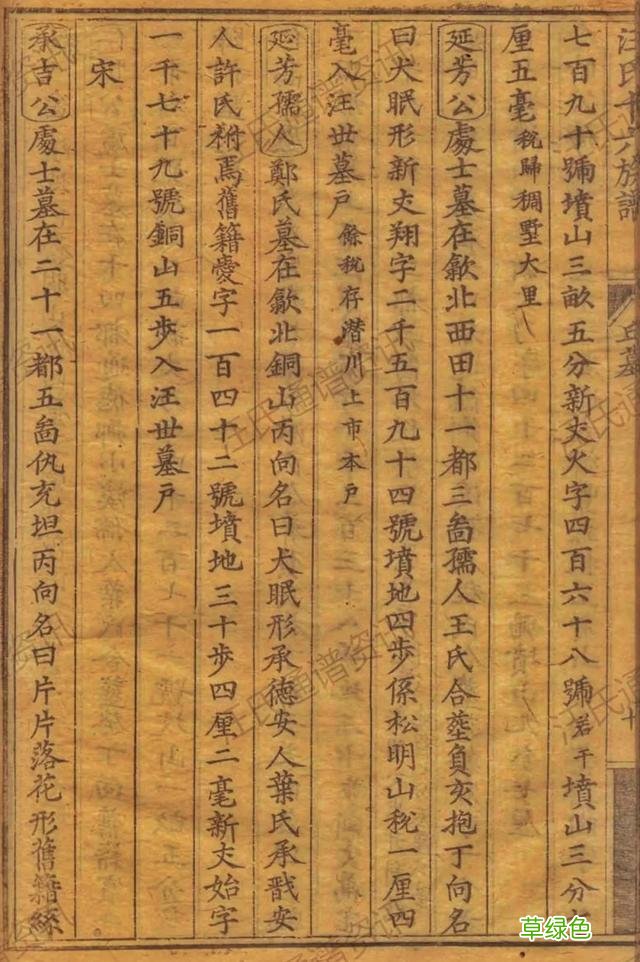 汪氏十六族譜
丘墓
七百九十號墳山三畝五分新丈火字四百六十八號若干墳山三分
厘五毫稅歸稠墅大里
延芳公處士墓在歙北西田十一都三啚孺人王氏合塟負亥抱丁向名
曰犬眠形新丈翔字二千五百九十四號墳地四步係松明山稅一厘四
毫入汪世墓戶餘稅存潛川上市本戶
延芳孺人鄭氏墓在歙北銅山丙向名曰犬眠形承德安人葉氏承戩安
人許氏祔焉舊籍愛字一百四十二號墳地三十步四厘二毫新丈始字
一千七十九號銅山五步入汪世墓戶
宋
承吉公處士墓在二十一都五啚仇充坦丙向名曰片片落花形舊籍絲
汪氏通譜资讯
草绿色